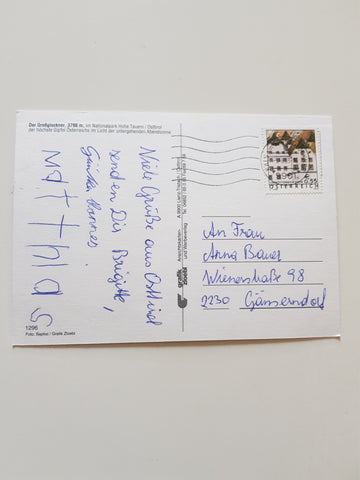 Der Großglockner, 3798 m, im Nationalpark Hohe Tauern / Osttirol
der höchste Gipfel Österreichs im Licht der untergehenden Abendsonne
Viele Grüße aus Osttirol
senden Dir Brigitte,
Günter Hannes
Matthias
1296
Foto: Baptist / Grafik Zloebl
grafik
zloebl
Ansichtskarten-
und Werbeverlag
ÖSTERREICH
An Frau
Anna Bauer
Wienerstraße 98
2230 Gänserndorf